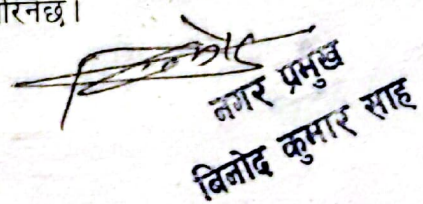 रिनेछ।
नगर प्रमुख
बिनोद कुमार साह